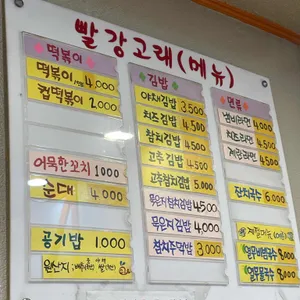 빨강고래(메뉴)
떡볶이
떡볶이 4,000
컵떡볶이 2,000
어묵한꼬치 1000
순대 4000
공기밥 1000
원산지
김밥
야채김밥 3,500
치즈김밥 4,500
참치김밥 4,500
고추김밥 4,500
고추참치김밥 5,000
묵은지참치김밥 4,500
묵은지김밥 4,000
참치주먹밥 3,000
면류
냄비라면 4,000
치즈라면 4,500
계란라면 4,500
잔치국수 6,000
열무비빔국수
열무물국수